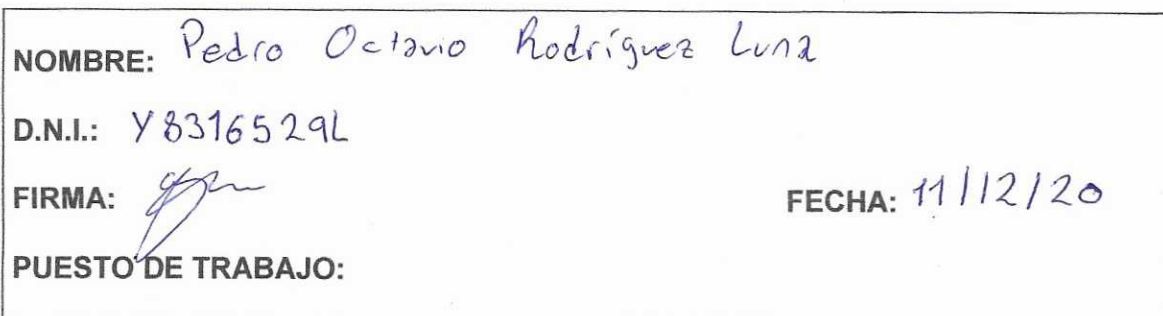 NOMBRE: Pedro Octavio Rodríguez Luna
D.N.I.: Y8316529L
FIRMA: FECHA: 11/12/20
PUESTO DE TRABAJO: